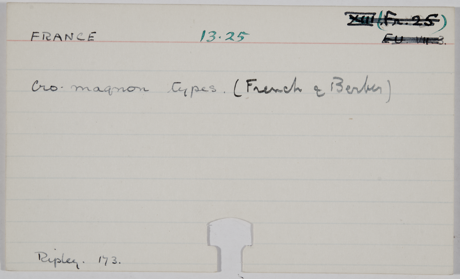 XIII (Fr. 25)
FRANCE 13.25
Cro-magnon types. (French & Berber)
Ripley. 173.